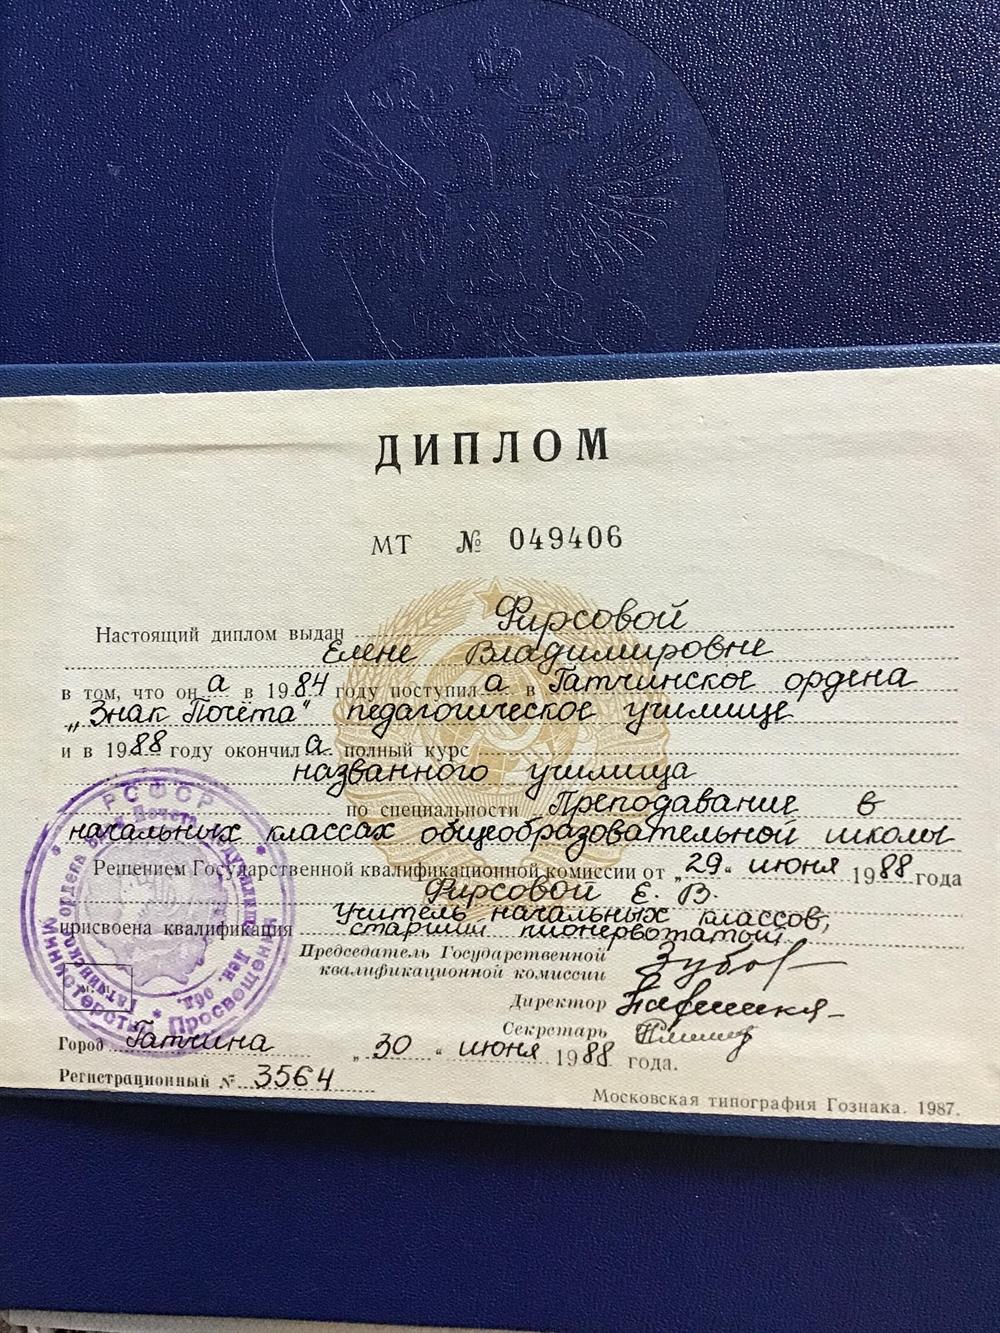 ДИПЛОМ
МТ № 049406
Настоящий диплом выдан Фирсовой
Елене Владимировне
в том, что он а в 1984 году поступил а в Гатчинское ордена
„Знак Почёта" педагогическое училище
и в 1988 году окончил а полный курс
названного училища
по специальности Преподавание в
начальных классах общеобразовательной школы
Решением Государственной квалификационной комиссии от „29" июня 1988 года
Фирсовой Е. В.
присвоена квалификация учитель начальных классов,
старший пионервожатый.
Председатель Государственной
квалификационной комиссии
Директор
Секретарь
Город Гатчина „30" июня 1988 года.
Регистрационный № 3564
Московская типография Гознака. 1987.
РСФСР
Министерство Просвещения